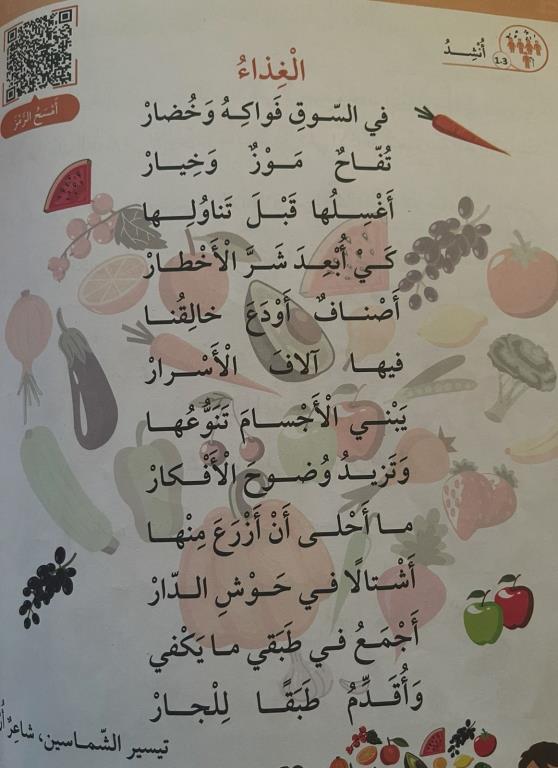 أُنْشِدُ
1-3
أَمْسَحُ الرَّمْزَ
الْغِذاءُ
في السّوقِ فَواكِهُ وَخُضارْ
تُفّاحٌ مَوْزٌ وَخِيارْ
أَغْسِلُها قَبْلَ تَناوُلِها
كَيْ أُبْعِدَ شَرَّ الْأَخْطارْ
أَصْنافٌ أَوْدَعَ خالِقُنا
فيها آلافَ الْأَسْرارْ
يَبْني الْأَجْسامَ تَنَوُّعُها
وَتَزيدُ وُضوحَ الْأَفْكارْ
ما أَحْلى أَنْ أَزْرَعَ مِنْها
أَشْتالًا في حَوْشِ الدّارْ
أَجْمَعُ في طَبَقي ما يَكْفي
وَأُقَدِّمُ طَبَقًا لِلْجارْ
تيسير الشّماسين، شاعِرٌ